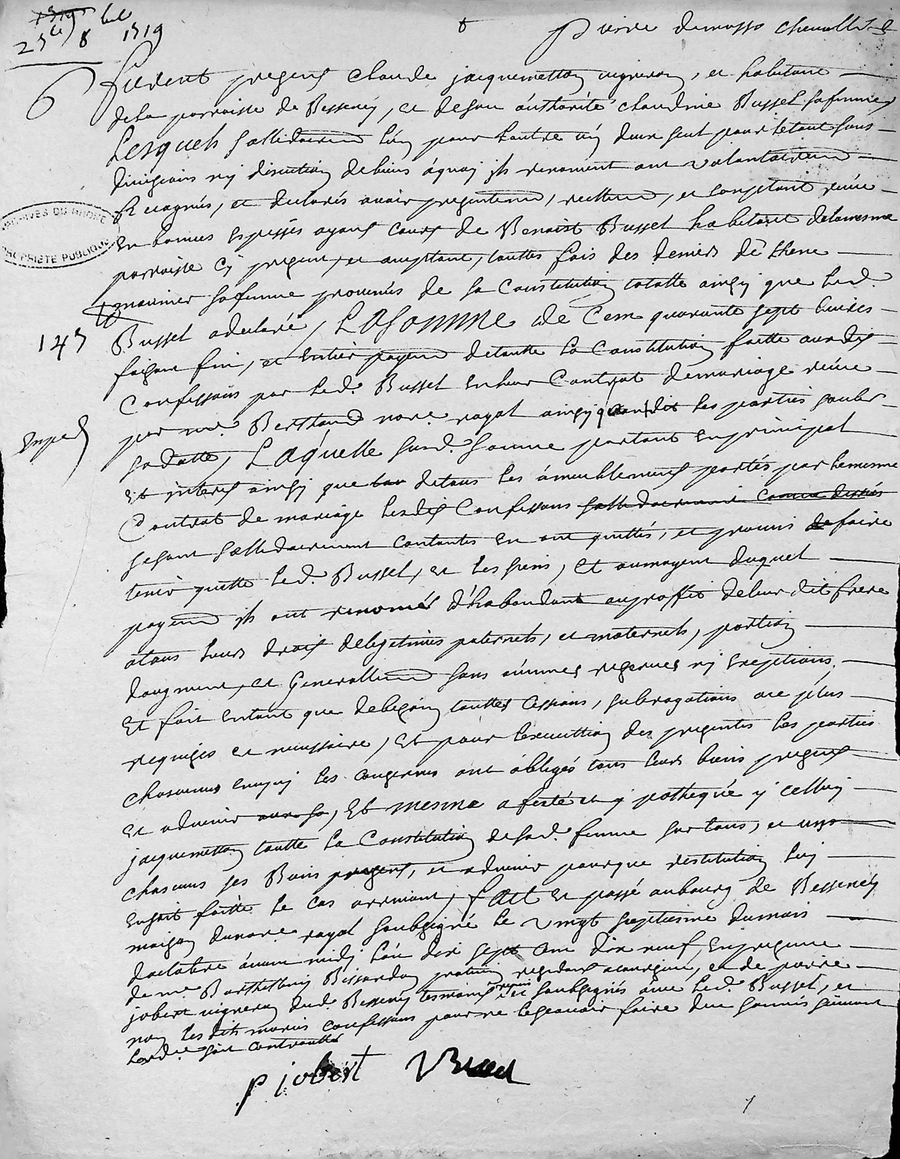 8bre 1719
8
pierre
6
furent presens claude jacquemetton vigneron, et habitant
dela parroisse de Bessenay, et desou authorité claudine Busset safemme
Lesquels sollidairem lun pour lautre un deux seul pour letout sans
division ny discution debiens aquoy ils renoncent ont volontairem
Et de gres, et declarés avoir presentem, reellem, et comptant reçeu
En bonnes especes ayant cours de Benoist Busset habitant delamesme
parroisse cy present, et aceptant, touttes fois des deniers de
ARCHIVES DU RHONE
PROPRIÉTÉ PUBLIQUE
safemme provenus de sa Constitution totalle ainsy que led.
147
Busset a declaré, Lasomme de Cent quarante sept livres
faisant fin, et entier payem detoutte la Constitution faitte auxdits
Confessans par led. Busset en leur Contrat demariage reçeu
par me Bertrand nore royal ainsy que les parties
Laquelle susd. somme portant en principal
Et interest ainsy que detous les ameublements portés par lemesme
Contrat de mariage lesdits Confessans
sesont sollidairement contantés en ont quittés, et promis faire
tenir quitte led. Busset, et les siens, Et aumoyent duquel
payem ils ont renoncés d'habondant auproffit deleur dit frere
atous leurs droits delegitimes paternels, et maternels, portion
daugment, et Generallem sans aucunes reserves ny exeptions,
Et fait entant que debesoin touttes cessions, subrogations au plus
requises et necessaire, Et pour lexecution des presentes les parties
chacunes ensoy les concernes ont obligés tous leurs biens presens
Et advenir, Et mesme affecté et ypothequé y celluy
jacquemetton toutte la Constitution desad. femme sur tous, et uns
chacuns ses Biens presens, et advenir pourque restitution luy
Ensoit faitte le cas arrivant, fait Et passé aubourg de Bessenay
maison dunore royal soubsigné le vingt septiesme dumois
doctobre avant midy lan dix sept cent dix neuf, En presence
de me Barthelemy Bissardon praticien residant, et de pierre
jobert vigneron dud. Bessenay tesmoins soubsignés avec led. Busset, et
non lesdits mariés confessans pour ne lesçavoir faire
P jobert Busset